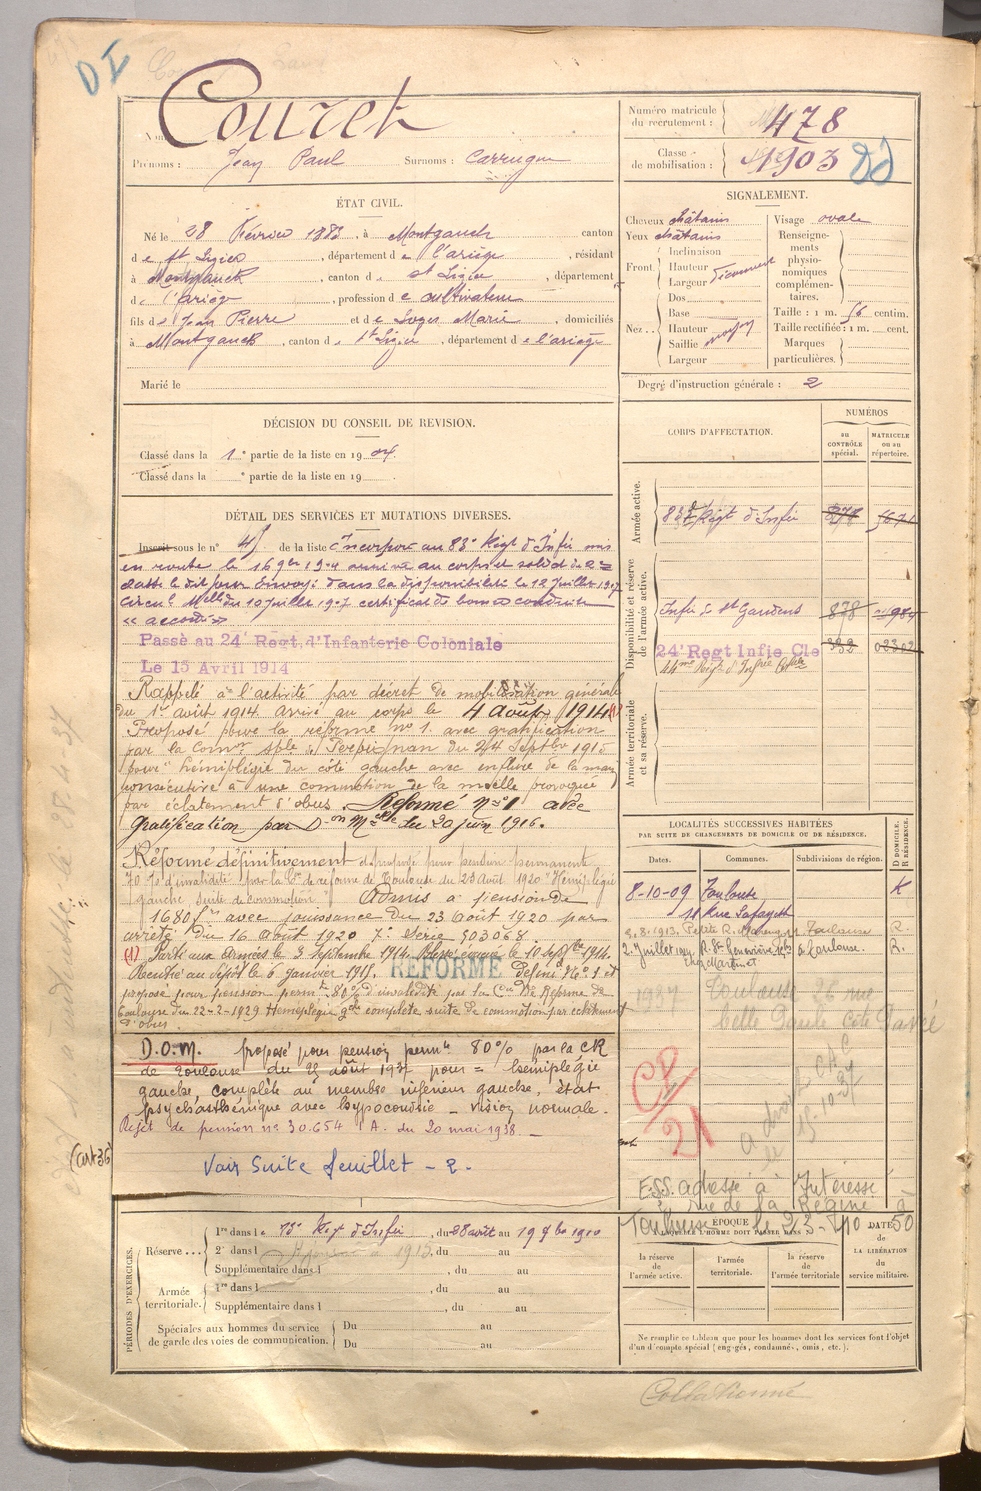 D I
Couret
Nom
Prénoms : Jean Paul Surnoms : Carrugue
ÉTAT CIVIL.
Né le 28 Février 1883, à Montgauch canton
de St Lizier, département de l'ariège, résidant
à Montgauch, canton d St Lizier, département
d l'ariège, profession de cultivateur
fils de Jean Pierre et de Soges Marie, domiciliés
à Montgauch, canton d St Lizier, département de l'ariège
Marié le
DÉCISION DU CONSEIL DE REVISION.
Classé dans la 1e partie de la liste en 1904.
Classé dans la e partie de la liste en 19
DÉTAIL DES SERVICES ET MUTATIONS DIVERSES.
Inscrit sous le n° 45 de la liste Incorporé au 83e Régt d'Infie mis
en route le 16 9bre 1904 arrivé au corps et soldat de 2e
classe le dit jour Envoyé dans la disponibilité le 12 juillet 1907
Circul. Mlle du 10 juillet 1907 certificat de bonne conduite
"accordé"
Passé au 24e Régt, d'Infanterie Coloniale
Le 15 Avril 1914
Rappelé à l'activité par décret de mobilisation générale
du 1er août 1914. arrivé au corps le 4 Août 1914 (1)
Proposé pour la réforme n° 1. avec gratification
par la Comon sple de Perpignan du 24 Septbre 1915
pour "hémiplégie du côté gauche avec enflure de la main
consécutive à une commotion de la moelle provoquée
par éclatement d'obus. Réformé n° 1 avec
gratification par Don Mlle du 20 juin 1916.
Réformé définitivement et proposé pour pension permanente
70 % d'invalidité par la Con de réforme de Toulouse du 23 Août 1920 "Hémiplégie
gauche suite de commotion. Admis à pension de
1680 f. avec jouissance du 23 août 1920 par
arrêté du 16 août 1920 7e série 503068.
(1) Parti aux armées le 3 Septembre 1914. Blessé évacué le 10 septbre 1914.
Rentré au dépôt le 6 janvier 1915. REFORMÉ Défini N° 1 et
proposé pour pension permte 80% d'invalidité par la Con de Réforme de
Toulouse du 22-2-1929 Hémiplégie gche complète suite de commotion par éclatement
d'obus.
D.O.M. Proposé pour pension permte 80% par la CR
de Toulouse du 25 août 1937 pour = hémiplégie
gauche complète au membre inférieur gauche, état
psychasthénique avec hypocondrie - vision normale.
Rejet de pension n° 30.654 A. du 20 mai 1938.
(art 36)
Voir Suite feuillet - 2.
PÉRIODES D'EXERCICES.
Réserve ... 1re dans le 15e Régt d'Infie, du 28 août au 19 7bre 1910
2e dans l , du au
Supplémentaire dans l , du au
Armée territoriale. 1re dans l , du au
Supplémentaire dans l , du au
Spéciales aux hommes du service
de garde des voies de communication. Du au
Du au
Numéro matricule du recrutement : 478
Classe de mobilisation : 1903
SIGNALEMENT.
Cheveux châtains
Yeux châtains
Front. Inclinaison
Hauteur
Largeur
Nez .. Dos
Base
Hauteur
Saillie moyen
Largeur
Visage ovale
Renseignements physionomiques complémentaires.
Taille : 1 m. 56 centim.
Taille rectifiée : 1 m. cent.
Marques particulières.
Degré d'instruction générale : 2
CORPS D'AFFECTATION.
NUMÉROS
au CONTRÔLE spécial.
MATRICULE ou au répertoire.
Armée active.
83e Régt d'Infie 878
Disponibilité et réserve de l'armée active.
Infie de St Gaudens 838
24e Regt Infie Cle 332 02302
44me Régt d'Infie Colale
Armée territoriale et sa réserve.
LOCALITÉS SUCCESSIVES HABITÉES
PAR SUITE DE CHANGEMENTS DE DOMICILE OU DE RÉSIDENCE.
Dates. Communes. Subdivisions de région. D DOMICILE. R RÉSIDENCE.
8-10-09 Toulouse
Rue Lafayette
8.8.1913. Petite R. Toulouse R.
2. Juillet R. Ste Geneviève Toulouse. R.
chez Martinet
1937 Toulouse 26 rue
belle Paule côte Pavée
CP
21
15-10-37
E.S.S. adressé à Intéressé
rue de la Régine à
Toulouse le 23-4-10 50
ÉPOQUE
A LAQUELLE L'HOMME DOIT PASSER DANS :
DATE de LA LIBÉRATION du service militaire.
la réserve de l'armée active.
l'armée territoriale.
la réserve de l'armée territoriale
Ne remplir ce tableau que pour les hommes dont les services font l'objet
d'un décompte spécial (engagés, condamnés, omis, etc.).
Collationné